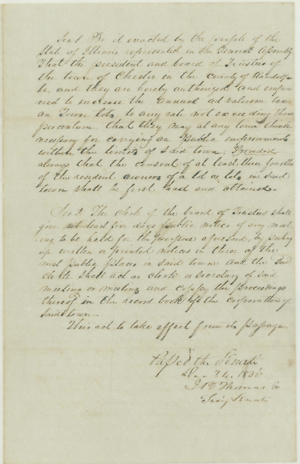 Sect 1 Be it enacted by the people of the
State of Illinois represented in the General Assembly
That the president and board of Trustees of
the town of Chester in the County of Randolph
be and they are hereby authorized and empow-
ered to increase the annual ad valorem tax
on Town lots to any rate not exceeding
per centum that they may at any time think
necessary for carrying on Public improvements
within the limits of said town Provided
always that the consent of at least three fourths
of the resident owners of a lot or lots in said
town shall be first had and obtained.
Sec 2 The clerk of the board of Trustees shall
give at least ten days public notice of any meet
ing to be held for the purposes aforesaid, by putting
up written or printed notices in three of the
most public places in said town and the said
clerk shall act as clerk or secretary of said
meeting or meetings and copy the proceedings
thereof in the record book of the corporation of
said town.
This act to take effect from its passage
Passed the Senate
24. 183
Thomas
Secy Senate